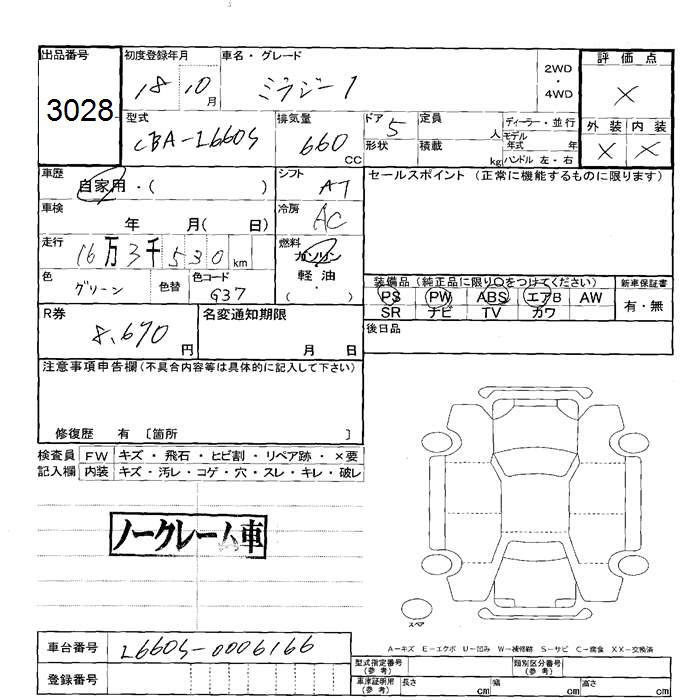 出品番号
3028
初度登録年月
18 10月
車名・グレード
ミラジーノ
2WD
・
4WD
評価点
×
外装 内装
× ×
型式
CBA-L660S
排気量
660
CC
ドア
5
形状
定員
人
積載
kg
ディーラー・並行
モデル年式 年
ハンドル 左・右
車歴
自家用・( )
シフト
AT
車検
年 月( 日)
冷房
AC
走行
16万3千530km
燃料
ガソリン
・
軽油
・
( )
色
グリーン
色替
色コード
G37
R券
8,670
円
名変通知期限
月 日
セールスポイント(正常に機能するものに限ります)
装備品(純正品に限り○をつけてください)
PS PW ABS エアB AW
SR ナビ TV カワ
新車保証書
有・無
後日品
注意事項申告欄(不具合内容等は具体的に記入して下さい)
修復歴 有 〔箇所 〕
検査員記入欄
FW キズ・飛石・ヒビ割・リペア跡・×要
内装 キズ・汚レ・コゲ・穴・スレ・キレ・破レ
ノークレーム車
スペア
A-キズ E-エクボ U-凹み W-補修跡 S-サビ C-腐食 XX-交換済
車台番号
L660S-0006166
登録番号
型式指定番号
(参考)
類別区分番号
(参考)
車庫証明用
(参考)
長さ cm
幅 cm
高さ cm